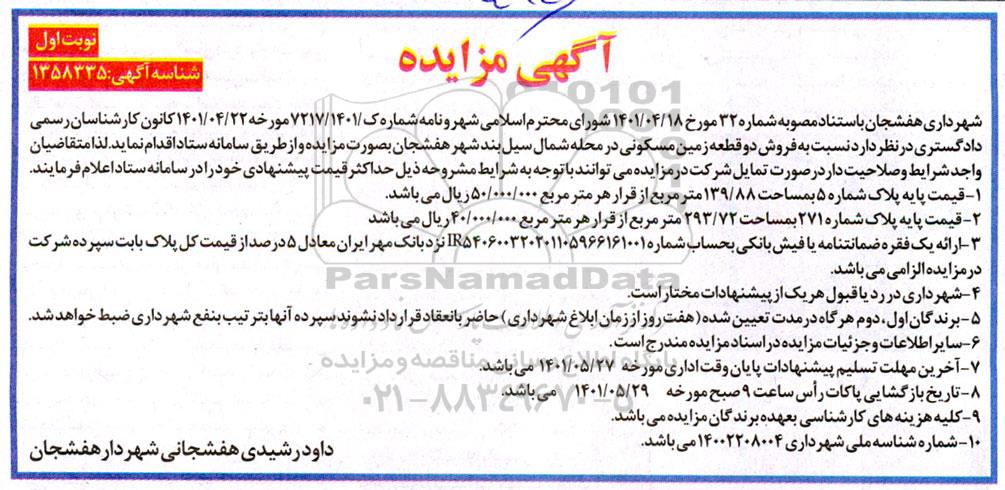 نوبت اول
شناسه آگهی: ۱۳۵۸۳۳۵
آگهی مزایده
شهرداری هفشجان باستناد مصوبه شماره ۳۲ مورخ ۱۴۰۱/۰۴/۱۸ شورای محترم اسلامی شهر و نامه شماره ک/۷۲۱۷/۱۴۰۱ مورخه ۱۴۰۱/۰۴/۲۲ کانون کارشناسان رسمی
دادگستری در نظر دارد نسبت به فروش دو قطعه زمین مسکونی در محله شمال سیل بند شهر هفشجان بصورت مزایده و از طریق سامانه ستاد اقدام نماید. لذا متقاضیان
واجد شرایط و صلاحیت دار در صورت تمایل شرکت در مزایده می توانند با توجه به شرایط مشروحه ذیل حداکثر قیمت پیشنهادی خود را در سامانه ستاد اعلام فرمایند.
۱-قیمت پایه پلاک شماره ۵ بمساحت ۱۳۹/۸۸ متر مربع از قرار هر متر مربع ۵۰/۰۰۰/۰۰۰ ریال می باشد.
۲-قیمت پایه پلاک شماره ۲۷۱ بمساحت ۲۹۳/۷۲ متر مربع از قرار هر متر مربع ۴۰/۰۰۰/۰۰۰ ریال می باشد
۳-ارائه یک فقره ضمانتنامه یا فیش بانکی بحساب شماره IR۵۴۰۶۰۰۳۲۰۲۰۱۱۰۵۹۶۶۱۶۱۰۰۱ نزد بانک مهر ایران معادل ۵ درصد از قیمت کل پلاک بابت سپرده شرکت
در مزایده الزامی می باشد.
۴-شهرداری در رد یا قبول هریک از پیشنهادات مختار است.
۵-برندگان اول، دوم هرگاه در مدت تعیین شده (هفت روز از زمان ابلاغ شهرداری) حاضر بانعقاد قرارداد نشوند سپرده آنها بترتیب بنفع شهرداری ضبط خواهد شد.
۶-سایر اطلاعات و جزئیات مزایده در اسناد مزایده مندرج است.
۷-آخرین مهلت تسلیم پیشنهادات پایان وقت اداری مورخه ۱۴۰۱/۰۵/۲۷ می باشد.
۸-تاریخ بازگشایی پاکات رأس ساعت ۹ صبح مورخه ۱۴۰۱/۰۵/۲۹ می باشد.
۹-کلیه هزینه های کارشناسی بعهده برندگان مزایده می باشد.
۱۰-شماره شناسه ملی شهرداری ۱۴۰۰۲۲۰۸۰۰۴ می باشد.
داود رشیدی هفشجانی شهردار هفشجان
ParsNamadData
پایگاه اطلاع رسانی مناقصه و مزایده
۰۲۱-۸۸۳۴۹۶۷۰-۵